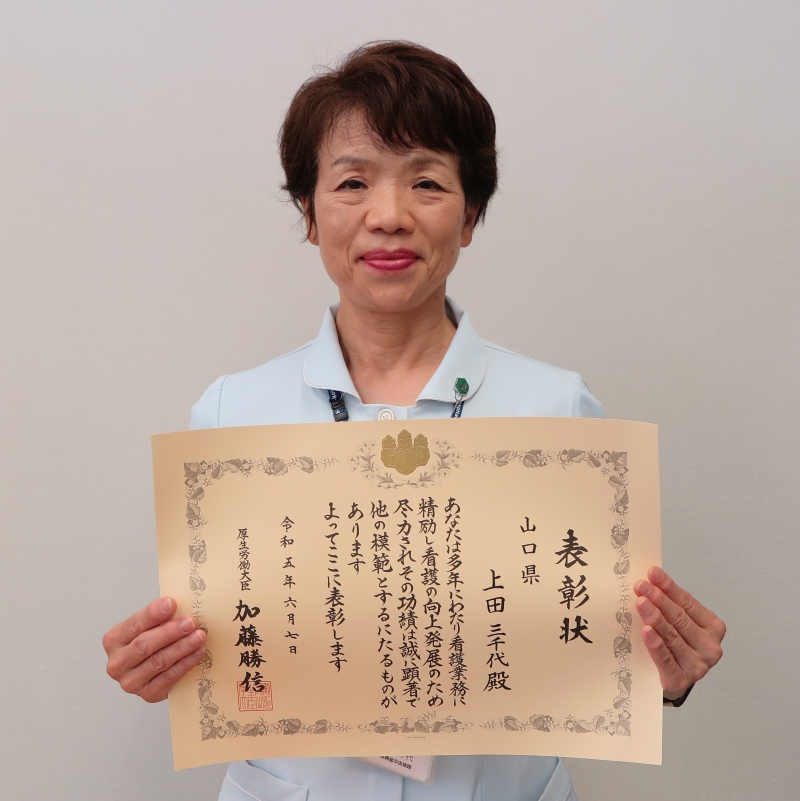 表彰状
山口県
上田三千代殿
あなたは多年にわたり看護業務に
精励し看護の向上発展のため
尽力されその功績は誠に顕著で
他の模範とするにたるものが
あります
よってここに表彰します
令和五年六月七日
厚生労働大臣 加藤勝信